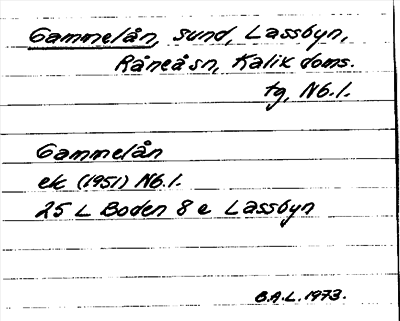 Gammelån, sund, Lassbyn,
Råneå sn, Kalix doms.
tg, Nb.l.
Gammelån
ek (1951) Nb.l.
25 L Boden 8 e Lassbyn
B.A.L. 1973.